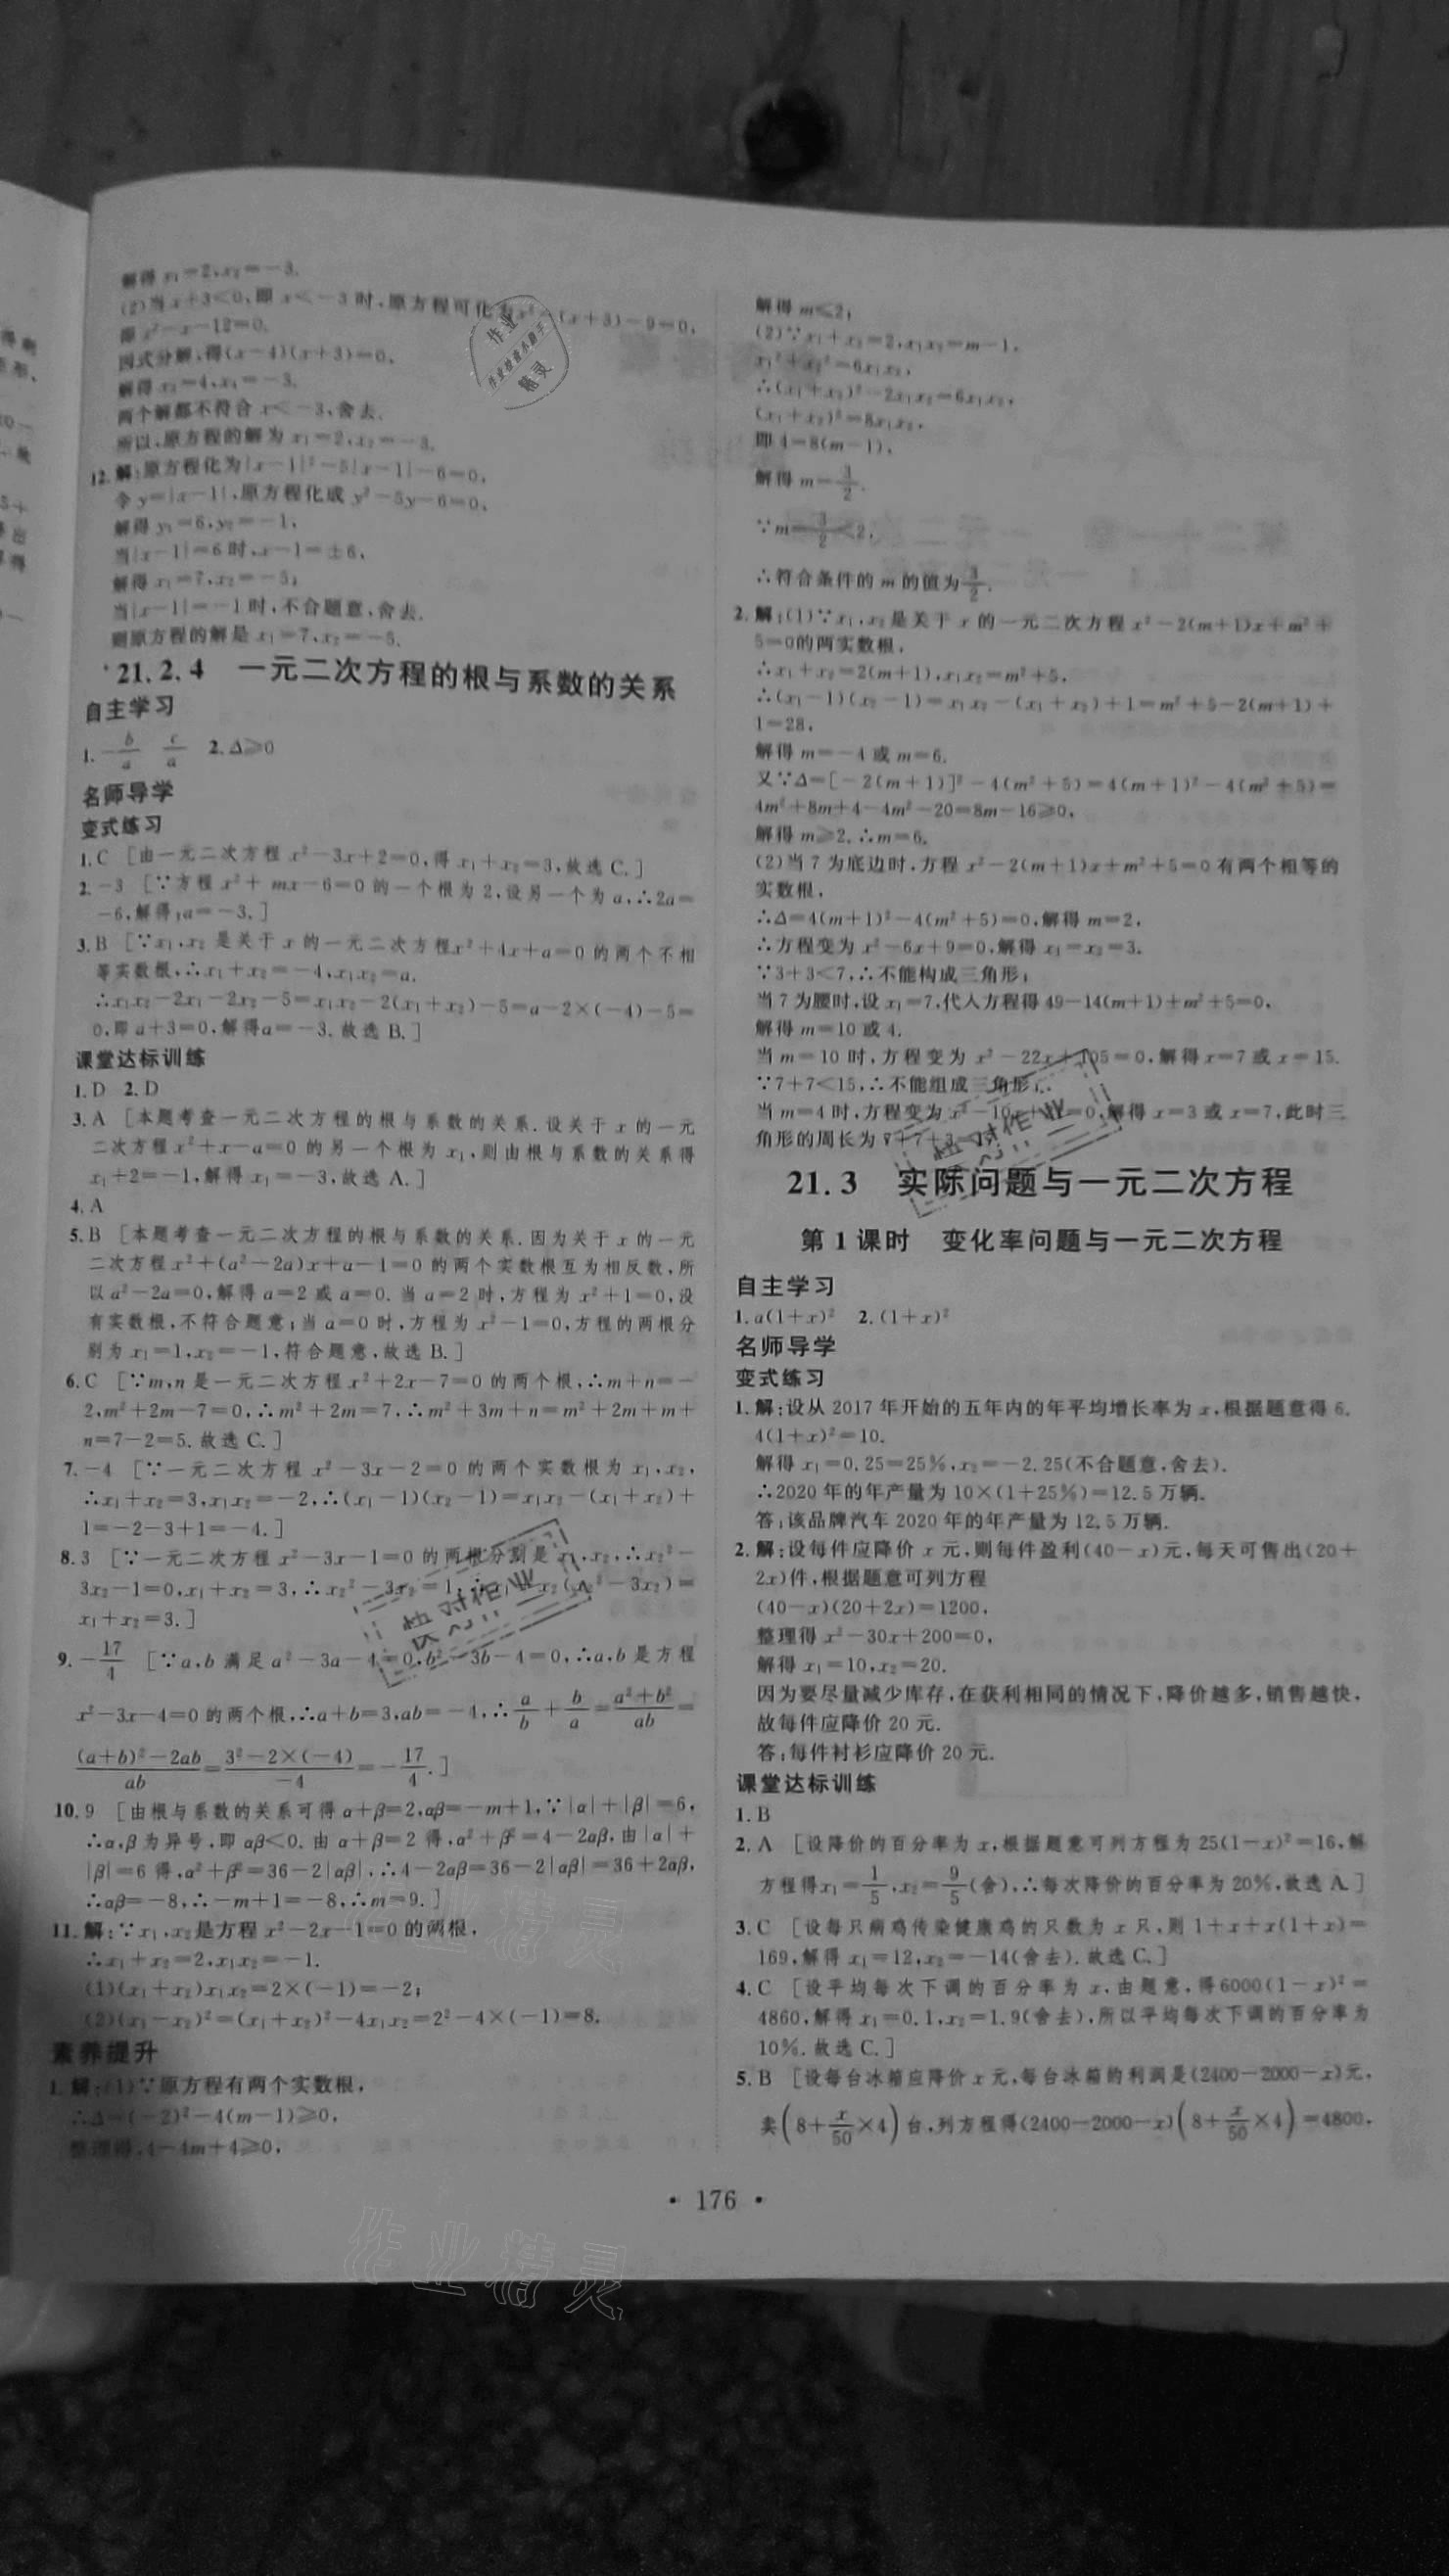 解得 x₁=2,x₂=-3.
(2)当 x+3<0,即 x<-3 时,原方程可化为x²-(x+3)-9=0,
即 x²-x-12=0.
因式分解,得(x-4)(x+3)=0,
解得 x₃=4,x₄=-3.
两个解都不符合 x<-3,舍去.
所以,原方程的解为 x₁=2,x₂=-3.
12.解:原方程化为|x-1|²-5|x-1|-6=0,
令 y=|x-1|,原方程化成 y²-5y-6=0,
解得 y₁=6,y₂=-1,
当|x-1|=6 时,x-1=±6,
解得 x₁=7,x₂=-5;
当|x-1|=-1 时,不合题意,舍去.
则原方程的解是 x₁=7,x₂=-5.
*21.2.4 一元二次方程的根与系数的关系
自主学习
1.-b/a c/a 2.Δ≥0
名师导学
变式练习
1.C [由一元二次方程 x²-3x+2=0,得 x₁+x₂=3,故选 C.]
2.-3 [∵方程 x²+mx-6=0 的一个根为 2,设另一个为 a,∴2a=
-6,解得:a=-3.]
3.B [∵x₁,x₂ 是关于 x 的一元二次方程x²+4x+a=0 的两个不相
等实数根,∴x₁+x₂=-4,x₁x₂=a.
∴x₁x₂-2x₁-2x₂-5=x₁x₂-2(x₁+x₂)-5=a-2×(-4)-5=
0,即 a+3=0,解得a=-3.故选 B.]
课堂达标训练
1.D 2.D
3.A [本题考查一元二次方程的根与系数的关系.设关于 x 的一元
二次方程 x²+x-a=0 的另一个根为 x₁,则由根与系数的关系得
x₁+2=-1,解得 x₁=-3,故选 A.]
4.A
5.B [本题考查一元二次方程的根与系数的关系.因为关于 x 的一元
二次方程 x²+(a²-2a)x+a-1=0 的两个实数根互为相反数,所
以 a²-2a=0,解得 a=2 或 a=0.当 a=2 时,方程为 x²+1=0,没
有实数根,不符合题意;当 a=0 时,方程为 x²-1=0,方程的两根分
别为 x₁=1,x₂=-1,符合题意,故选 B.]
6.C [∵m,n 是一元二次方程 x²+2x-7=0 的两个根,∴m+n=-
2,m²+2m-7=0,∴m²+2m=7,∴m²+3m+n=m²+2m+m+
n=7-2=5.故选 C.]
7.-4 [∵一元二次方程 x²-3x-2=0 的两个实数根为 x₁,x₂,
∴x₁+x₂=3,x₁x₂=-2,∴(x₁-1)(x₂-1)=x₁x₂-(x₁+x₂)+
1=-2-3+1=-4.]
8.3 [∵一元二次方程 x²-3x-1=0 的两根分别是 x₁,x₂,∴x₂²-
3x₂-1=0,x₁+x₂=3,∴x₂²-3x₂=1,∴x₁+x₂(x₂²-3x₂)=
x₁+x₂=3.]
9.-17/4 [∵a,b 满足 a²-3a-4=0,b²-3b-4=0,∴a,b 是方程
x²-3x-4=0 的两个根,∴a+b=3,ab=-4,∴a/b+b/a=(a²+b²)/ab=
((a+b)²-2ab)/ab=(3²-2×(-4))/-4=-17/4.]
10.9 [由根与系数的关系可得 α+β=2,αβ=-m+1,∵|α|+|β|=6,
∴α,β 为异号,即 αβ<0.由 α+β=2 得,α²+β²=4-2αβ,由|α|+
|β|=6 得,α²+β²=36-2|αβ|,∴4-2αβ=36-2|αβ|=36+2αβ,
∴αβ=-8,∴-m+1=-8,∴m=9.]
11.解:∵x₁,x₂是方程 x²-2x-1=0 的两根,
∴x₁+x₂=2,x₁x₂=-1.
(1)(x₁+x₂)x₁x₂=2×(-1)=-2;
(2)(x₁-x₂)²=(x₁+x₂)²-4x₁x₂=2²-4×(-1)=8.
素养提升
1.解:(1)∵原方程有两个实数根,
∴Δ=(-2)²-4(m-1)≥0,
整理得,4-4m+4≥0,
解得 m≤2;
(2)∵x₁+x₂=2,x₁x₂=m-1,
x₁²+x₂²=6x₁x₂,
∴(x₁+x₂)²-2x₁x₂=6x₁x₂,
(x₁+x₂)²=8x₁x₂,
即 4=8(m-1),
解得 m=3/2.
∵m=3/2<2,
∴符合条件的 m 的值为3/2.
2.解:(1)∵x₁,x₂是关于 x 的一元二次方程 x²-2(m+1)x+m²+
5=0的两实数根,
∴x₁+x₂=2(m+1),x₁x₂=m²+5,
∴(x₁-1)(x₂-1)=x₁x₂-(x₁+x₂)+1=m²+5-2(m+1)+
1=28,
解得 m=-4 或 m=6.
又∵Δ=[-2(m+1)]²-4(m²+5)=4(m+1)²-4(m²+5)=
4m²+8m+4-4m²-20=8m-16≥0,
解得 m≥2.∴m=6.
(2)当 7 为底边时,方程 x²-2(m+1)x+m²+5=0 有两个相等的
实数根,
∴Δ=4(m+1)²-4(m²+5)=0,解得 m=2,
∴方程变为 x²-6x+9=0,解得 x₁=x₂=3.
∵3+3<7,∴不能构成三角形;
当 7 为腰时,设 x₁=7,代入方程得 49-14(m+1)+m²+5=0,
解得 m=10 或 4.
当 m=10 时,方程变为 x²-22x+105=0,解得 x=7 或 x=15.
∵7+7<15,∴不能组成三角形;
当 m=4 时,方程变为 x²-10x+21=0,解得 x=3 或 x=7,此时三
角形的周长为 7+7+3=17.
21.3 实际问题与一元二次方程
第 1 课时 变化率问题与一元二次方程
自主学习
1.a(1+x)² 2.(1+x)²
名师导学
变式练习
1.解:设从 2017 年开始的五年内的年平均增长率为 x,根据题意得 6.
4(1+x)²=10.
解得 x₁=0.25=25%,x₂=-2.25(不合题意,舍去).
∴2020 年的年产量为 10×(1+25%)=12.5 万辆.
答:该品牌汽车 2020 年的年产量为 12.5 万辆.
2.解:设每件应降价 x 元,则每件盈利(40-x)元,每天可售出(20+
2x)件,根据题意可列方程
(40-x)(20+2x)=1200,
整理得 x²-30x+200=0,
解得 x₁=10,x₂=20.
因为要尽量减少库存,在获利相同的情况下,降价越多,销售越快,
故每件应降价 20 元.
答:每件衬衫应降价 20 元.
课堂达标训练
1.B
2.A [设降价的百分率为 x,根据题意可列方程为 25(1-x)²=16,解
方程得x₁=1/5,x₂=9/5(舍),∴每次降价的百分率为 20%,故选 A.]
3.C [设每只病鸡传染健康鸡的只数为 x 只,则 1+x+x(1+x)=
169,解得 x₁=12,x₂=-14(舍去).故选C.]
4.C [设平均每次下调的百分率为 x,由题意,得6000(1-x)²=
4860,解得 x₁=0.1,x₂=1.9(舍去),所以平均每次下调的百分率为
10%.故选 C.]
5.B [设每台冰箱应降价 x 元,每台冰箱的利润是(2400-2000-x)元,
卖(8+x/50×4)台,列方程得(2400-2000-x)(8+x/50×4)=4800,
• 176 •
作业精灵